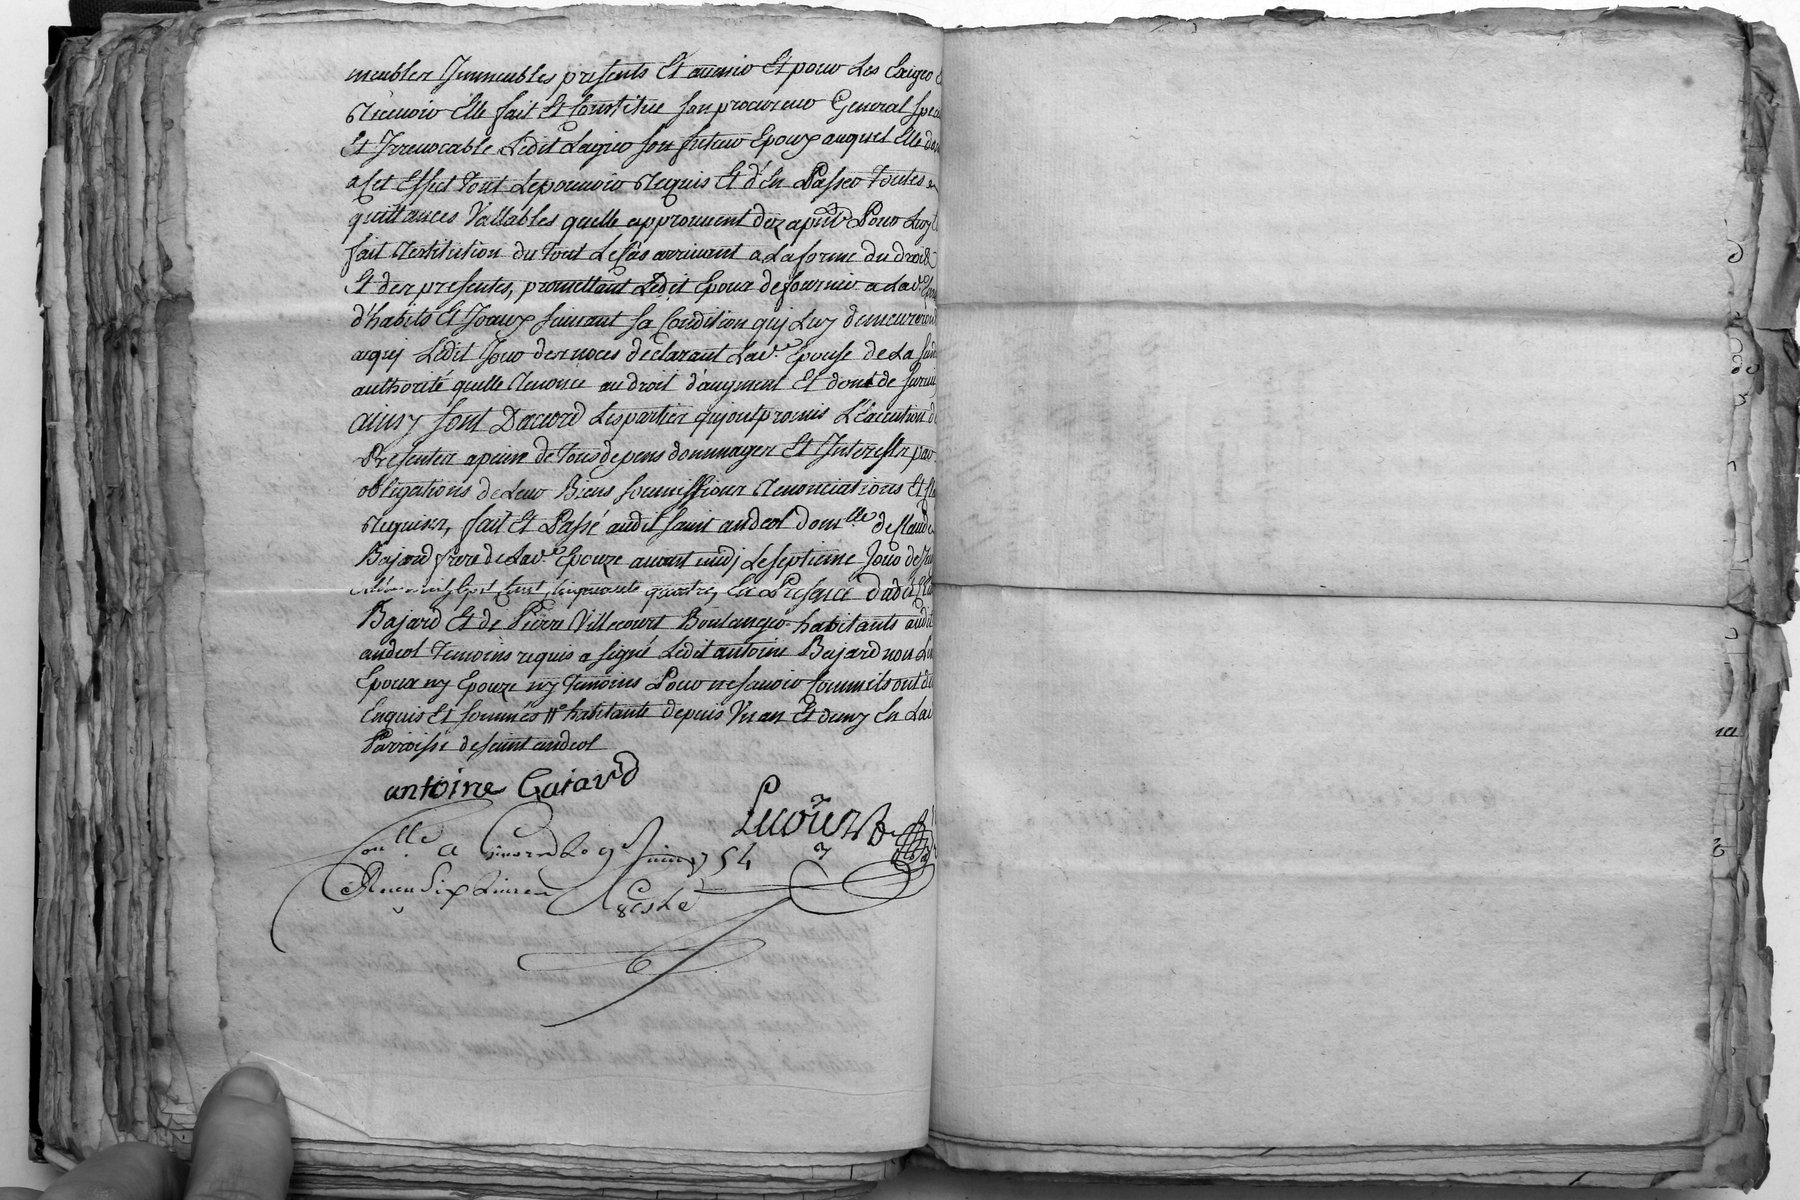 meubles Immeubles presents Et avenir Et pour Les Exiger
Recevoir Elle fait Et Constitue son procureur General
Et Irrevocable Ledit Laigier son futur Epoux auquel Elle
a Cet Effet Tout Lepouvoir Requis Et d'En Passer Toutes
quittances Vallables quelle approuvent dez apnt Pour Luy
fait Restitution du Tout Le Cas arrivant a La forme du droit
Et des presentes, promettant Ledit Epoux de fournir a Lad.e
d'habits Et Joaux suivant sa Condition qui Luy demeureront
aquis Ledit Jour des noces declarant Lad.e Epouse de La
authorité quelle Renonce au droit d'augment Et dont de
ainsy sont Dacord Les parties qui ont promis L'Execution
Presentes a peine de Tous depens dommages Et Interests par
obligations de Leur Biens soumissions Renonciations Et
Requises, fait Et Passé audit saint andeol dom.lle de
Bajard frere de Lad.e Epouze avant midj Le septieme Jour de
mil sept Cent Cinquante quatre, En Presence dud.
Bajard Et de Pierre Villecourt Boulanger habitants audit
andeol Temoins requis a signé Ledit antoine Bajard non
Epoux ny Epouze ny Temoins Pour ne savoir Comme ils ont
Enquis Et sommés habitante depuis Un an Et demy En
Parroisse de saint andeol
antoine Baiard
Con.lle a Givors Le 9e Juin 1754
Receu six Livres